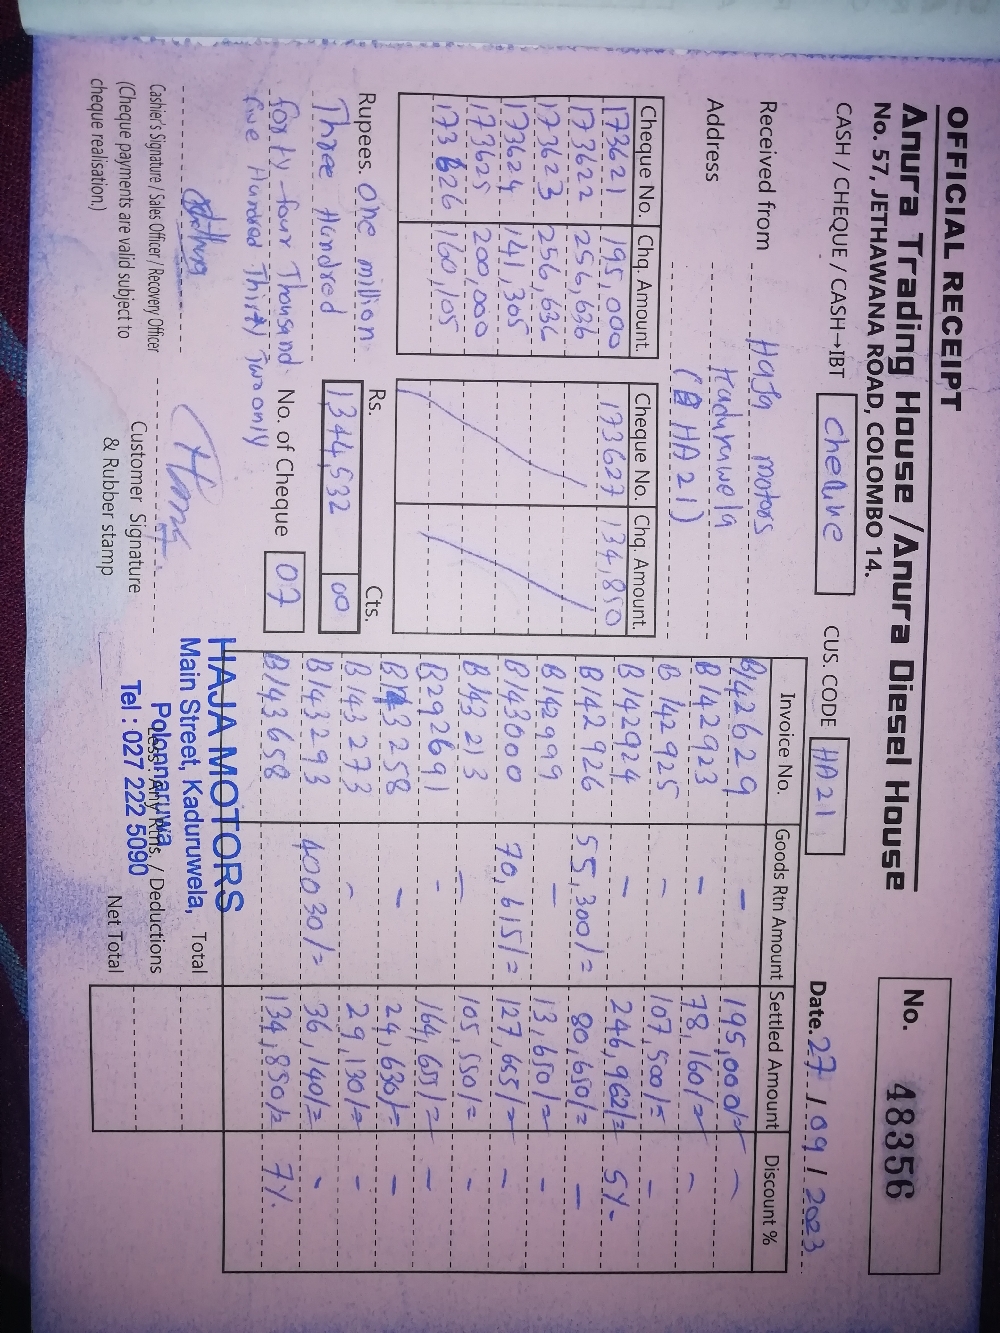 OFFICIAL RECEIPT
Anura Trading House / Anura Diesel House
No. 57, JETHAWANA ROAD, COLOMBO 14.
No. 48356
CASH / CHEQUE / CASH→IBT Cheque CUS. CODE HA21 Date. 27 / 09 / 2023
Received from Haja motors
Address Kaduruwela
(HA 21)
Cheque No. Chq. Amount. Cheque No. Chq. Amount.
173621 195,000 173627 134,850
173622 256,636
173623 256,636
173624 141,305
173625 200,000
173626 160,105
Rupees. One million
Three Hundred
forty four Thousand
five Hundred Thirty Two only
Rs. Cts.
1,344,532 00
No. of Cheque 07
Cashier's Signature / Sales Officer / Recovery Officer
(Cheque payments are valid subject to
cheque realisation.)
Customer Signature
& Rubber stamp
Invoice No. Goods Rtn Amount Settled Amount Discount %
B142629 - 195,000/= -
B142923 - 78,160/= -
B142925 - 107,500/= -
B142924 - 246,962/= 5%
B142926 55,300/= 80,650/= -
B142999 - 13,650/= -
B143000 70,615/= 127,655/= -
B143213 - 105,550/= -
B292691 - 164,655/= -
B143258 - 24,630/= -
B143273 - 29,130/= -
B143293 40030/= 36,140/= -
B143658 134,850/= 7%
HAJA MOTORS
Main Street, Kaduruwela,
Polonnaruwa.
Tel : 027 222 5090
Total
Less : Any Rtns. / Deductions
Net Total